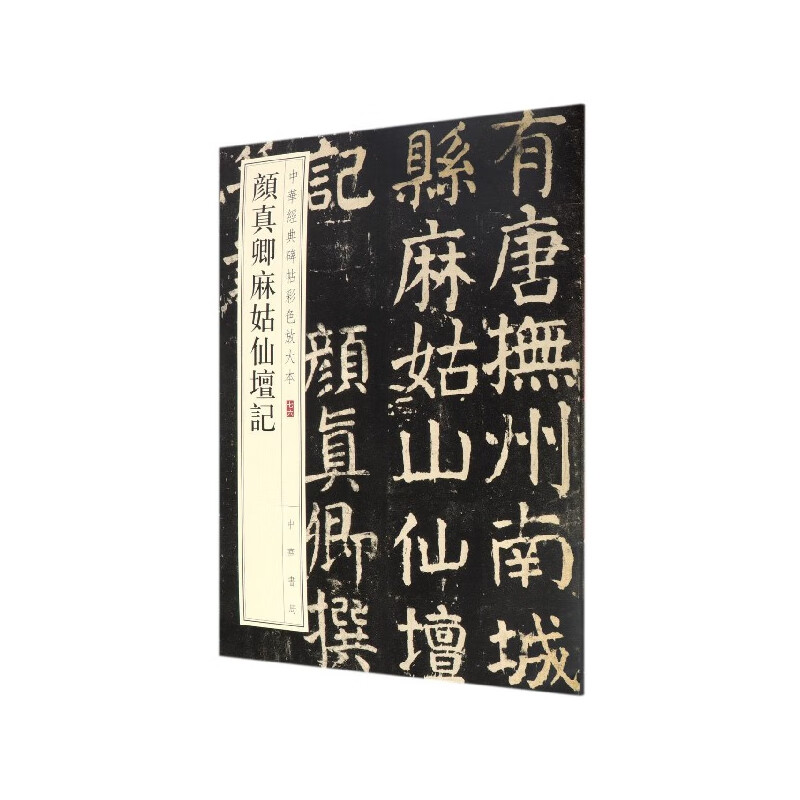 有唐撫州南城
縣麻姑山仙壇
記
顏真卿撰
顔真卿麻姑仙壇記
中華經典碑帖彩色放大本
七六
中華書局